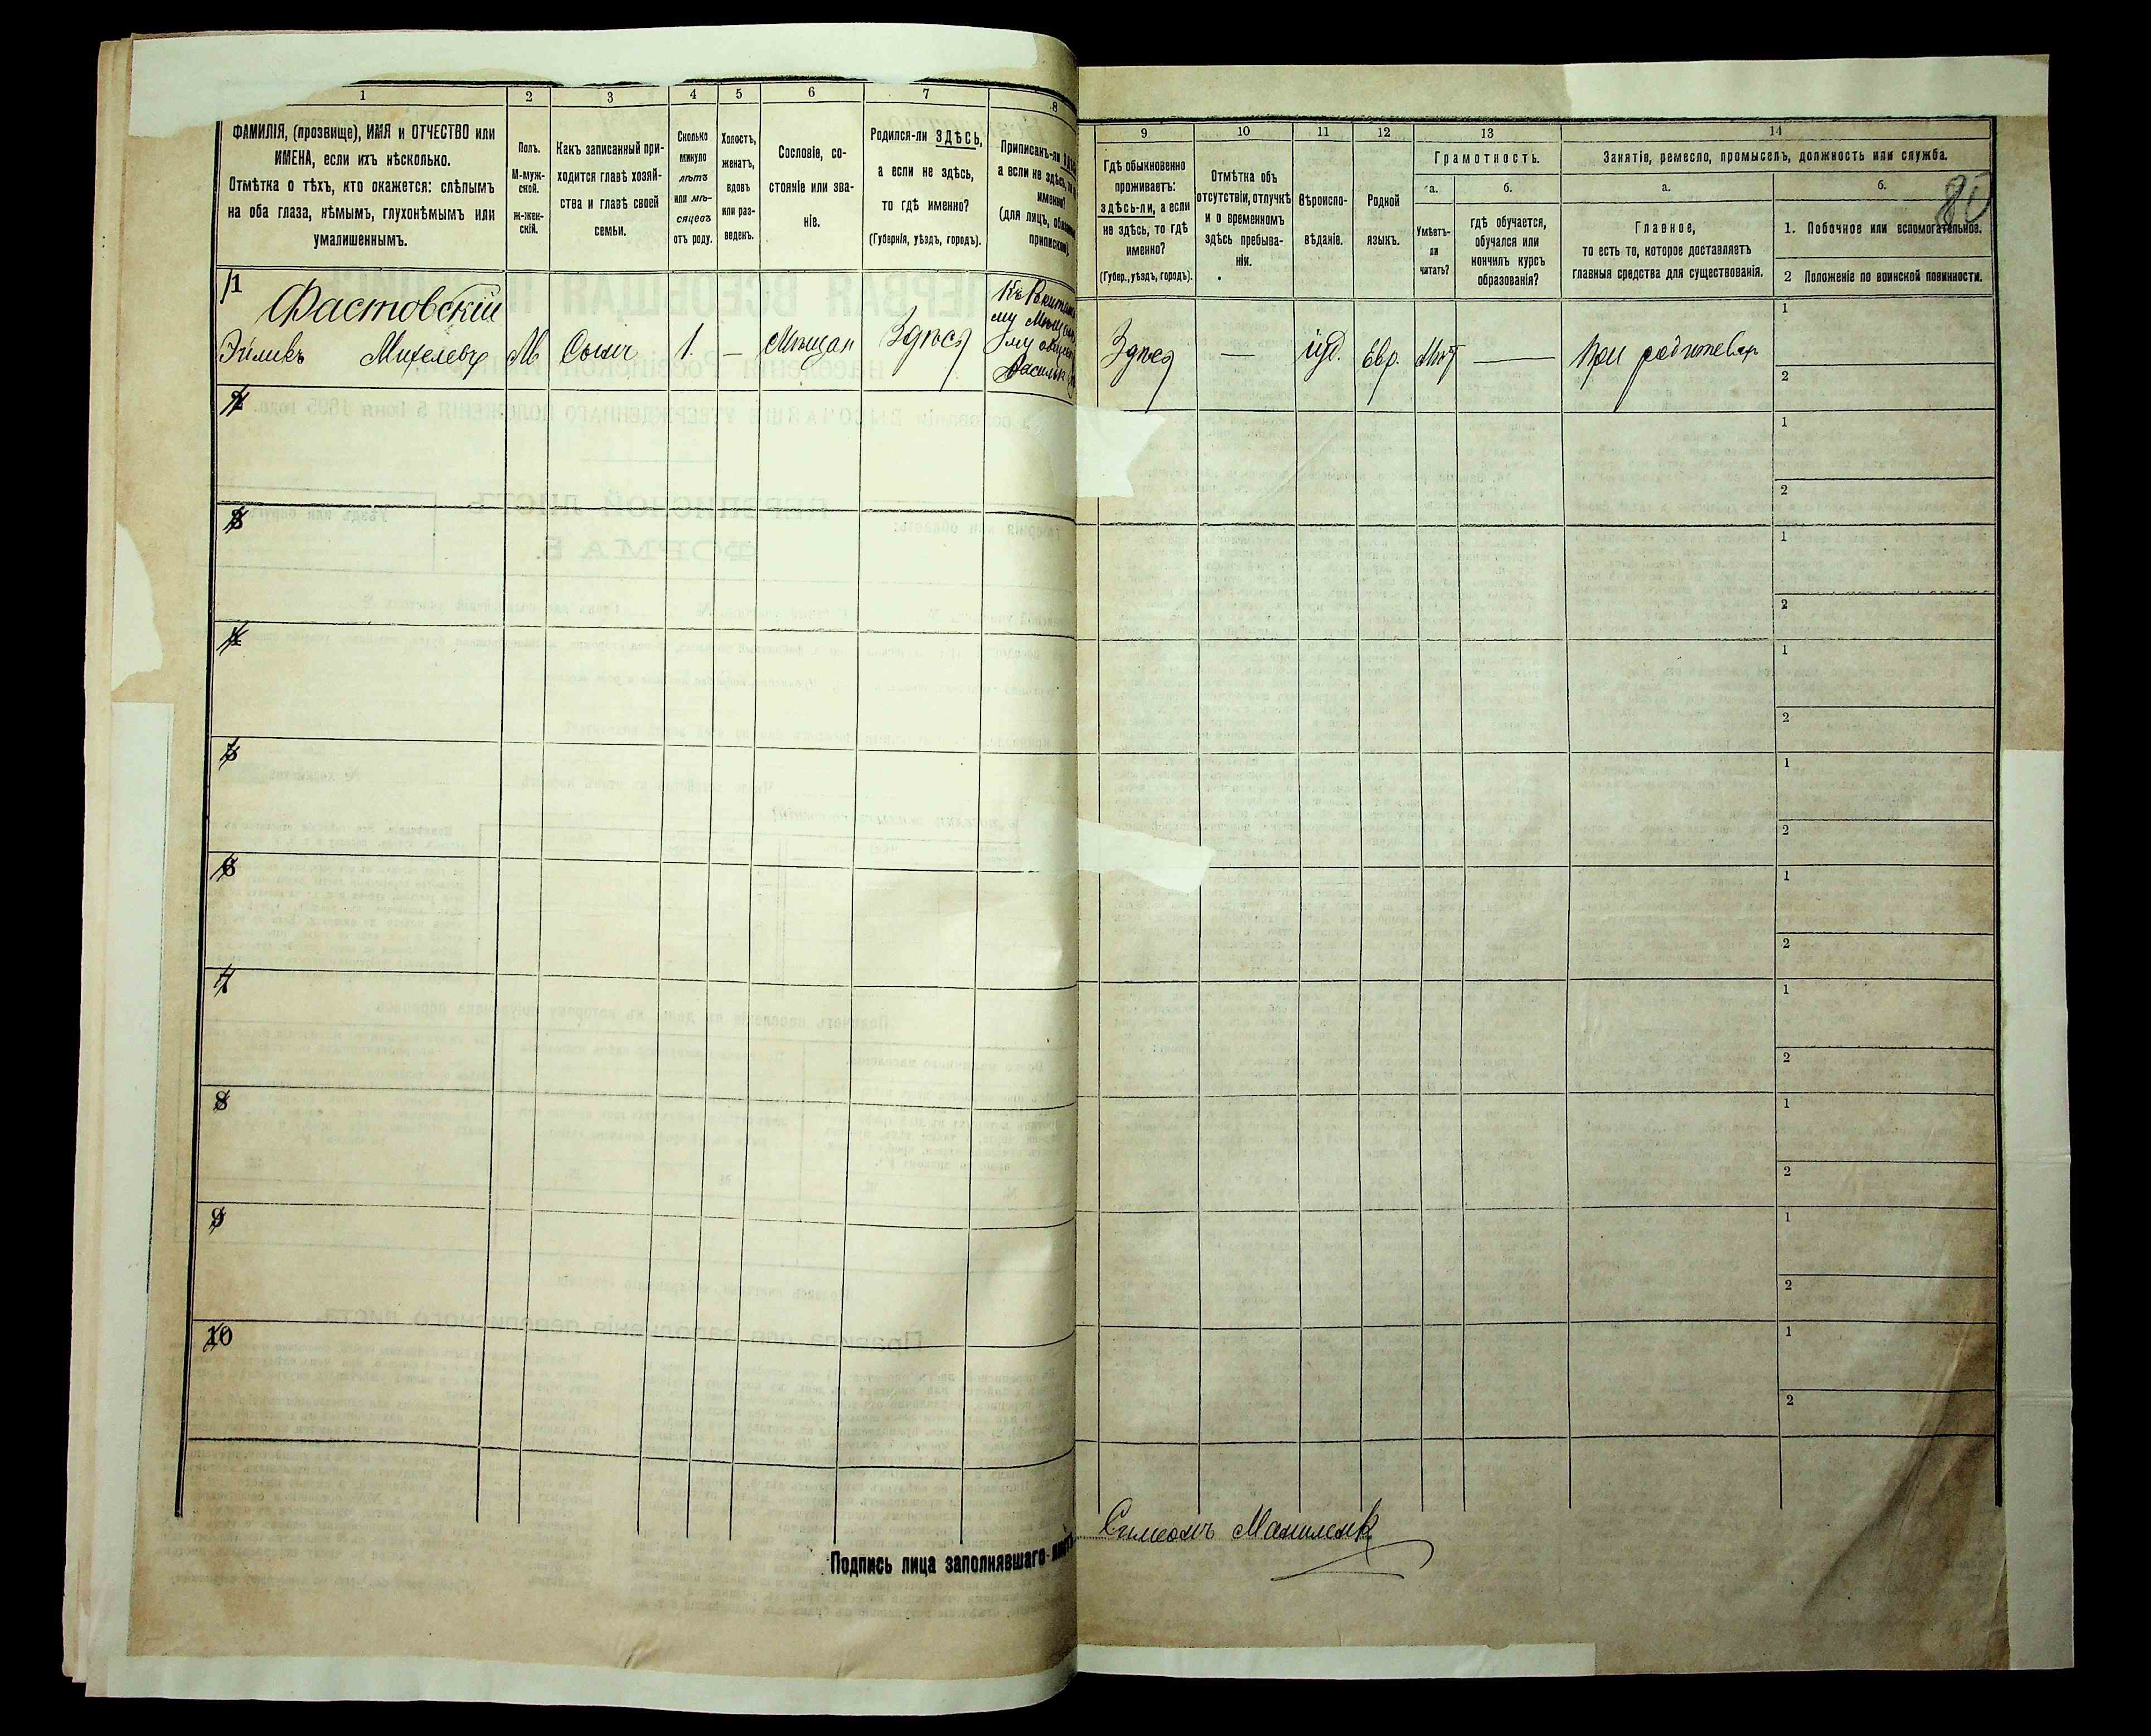 1
2
3
4
5
6
7
8
ФАМИЛІЯ, (прозвище), ИМЯ и ОТЧЕСТВО или
ИМЕНА, если ихъ нѣсколько.
Отмѣтка о тѣхъ, кто окажется: слѣпымъ
на оба глаза, нѣмымъ, глухонѣмымъ или
умалишеннымъ.
Полъ.
М-муж-
ской.
ж-жен-
скій.
Какъ записанный при-
ходится главѣ хозяй-
ства и главѣ своей
семьи.
Сколько
минуло
лѣтъ
или мѣ-
сяцевъ
отъ роду.
Холостъ,
женатъ,
вдовъ
или раз-
веденъ.
Сословіе, со-
стояніе или зва-
ніе.
Родился-ли ЗДѢСЬ,
а если не здѣсь,
то гдѣ именно?
(Губернія, уѣздъ, городъ).
Приписанъ-ли
а если не здѣсь,
именно?
(для лицъ,
9
10
11
12
13
14
Гдѣ обыкновенно
проживаетъ:
здѣсь-ли, а если
не здѣсь, то гдѣ
именно?
(Губер., уѣздъ, городъ).
Отмѣтка объ
отсутствіи, отлучкѣ
и о временномъ
здѣсь пребыва-
ніи.
Вѣроиспо-
вѣданіе.
Родной
языкъ.
Грамотность.
а.
Умѣетъ-
ли
читать?
б.
гдѣ обучается,
обучался или
кончилъ курсъ
образованія?
Занятіе, ремесло, промыселъ, должность или служба.
а.
Главное,
то есть то, которое доставляетъ
главныя средства для существованія.
б.
1. Побочное или вспомогательное.
2 Положеніе по воинской повинности.
1
Фастовскій
Михелевъ
М
Сынъ
1.
—
Мѣщан
Здѣсь
му
Здѣсь
—
іуд.
Евр.
Нѣт
—
При родителях
1
2
2
1
2
3
1
2
4
1
2
5
1
2
6
1
2
7
1
2
8
1
2
9
1
2
10
1
2
Подпись лица заполнявшаго
Симеонъ